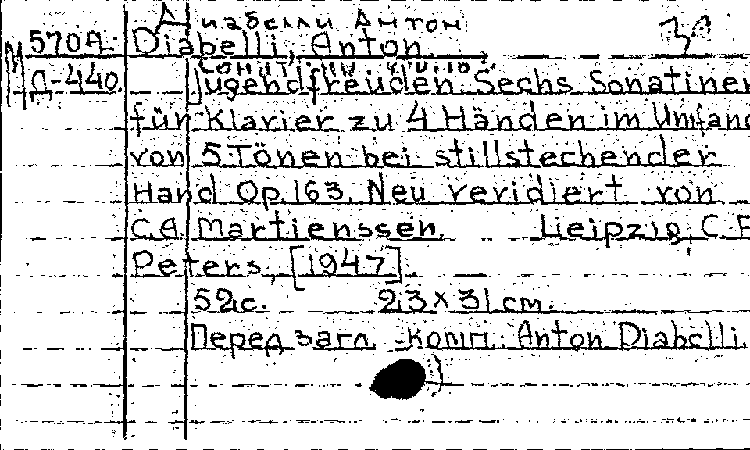 Диабелли Антон
М 570А. Diabelli, Anton 34
Д-440. Jugendfreuden. Sechs Sonatinen
für Klavier zu 4 Händen im Umfang
von 5 Tönen bei stillstechender
Hand Op. 163. Neu veridiert von
C.A. Martienssen. Leipzig, C.F.
Peters, [1947].
52с. 23×31 cm.
Перед загл. комп.: Anton Diabelli.